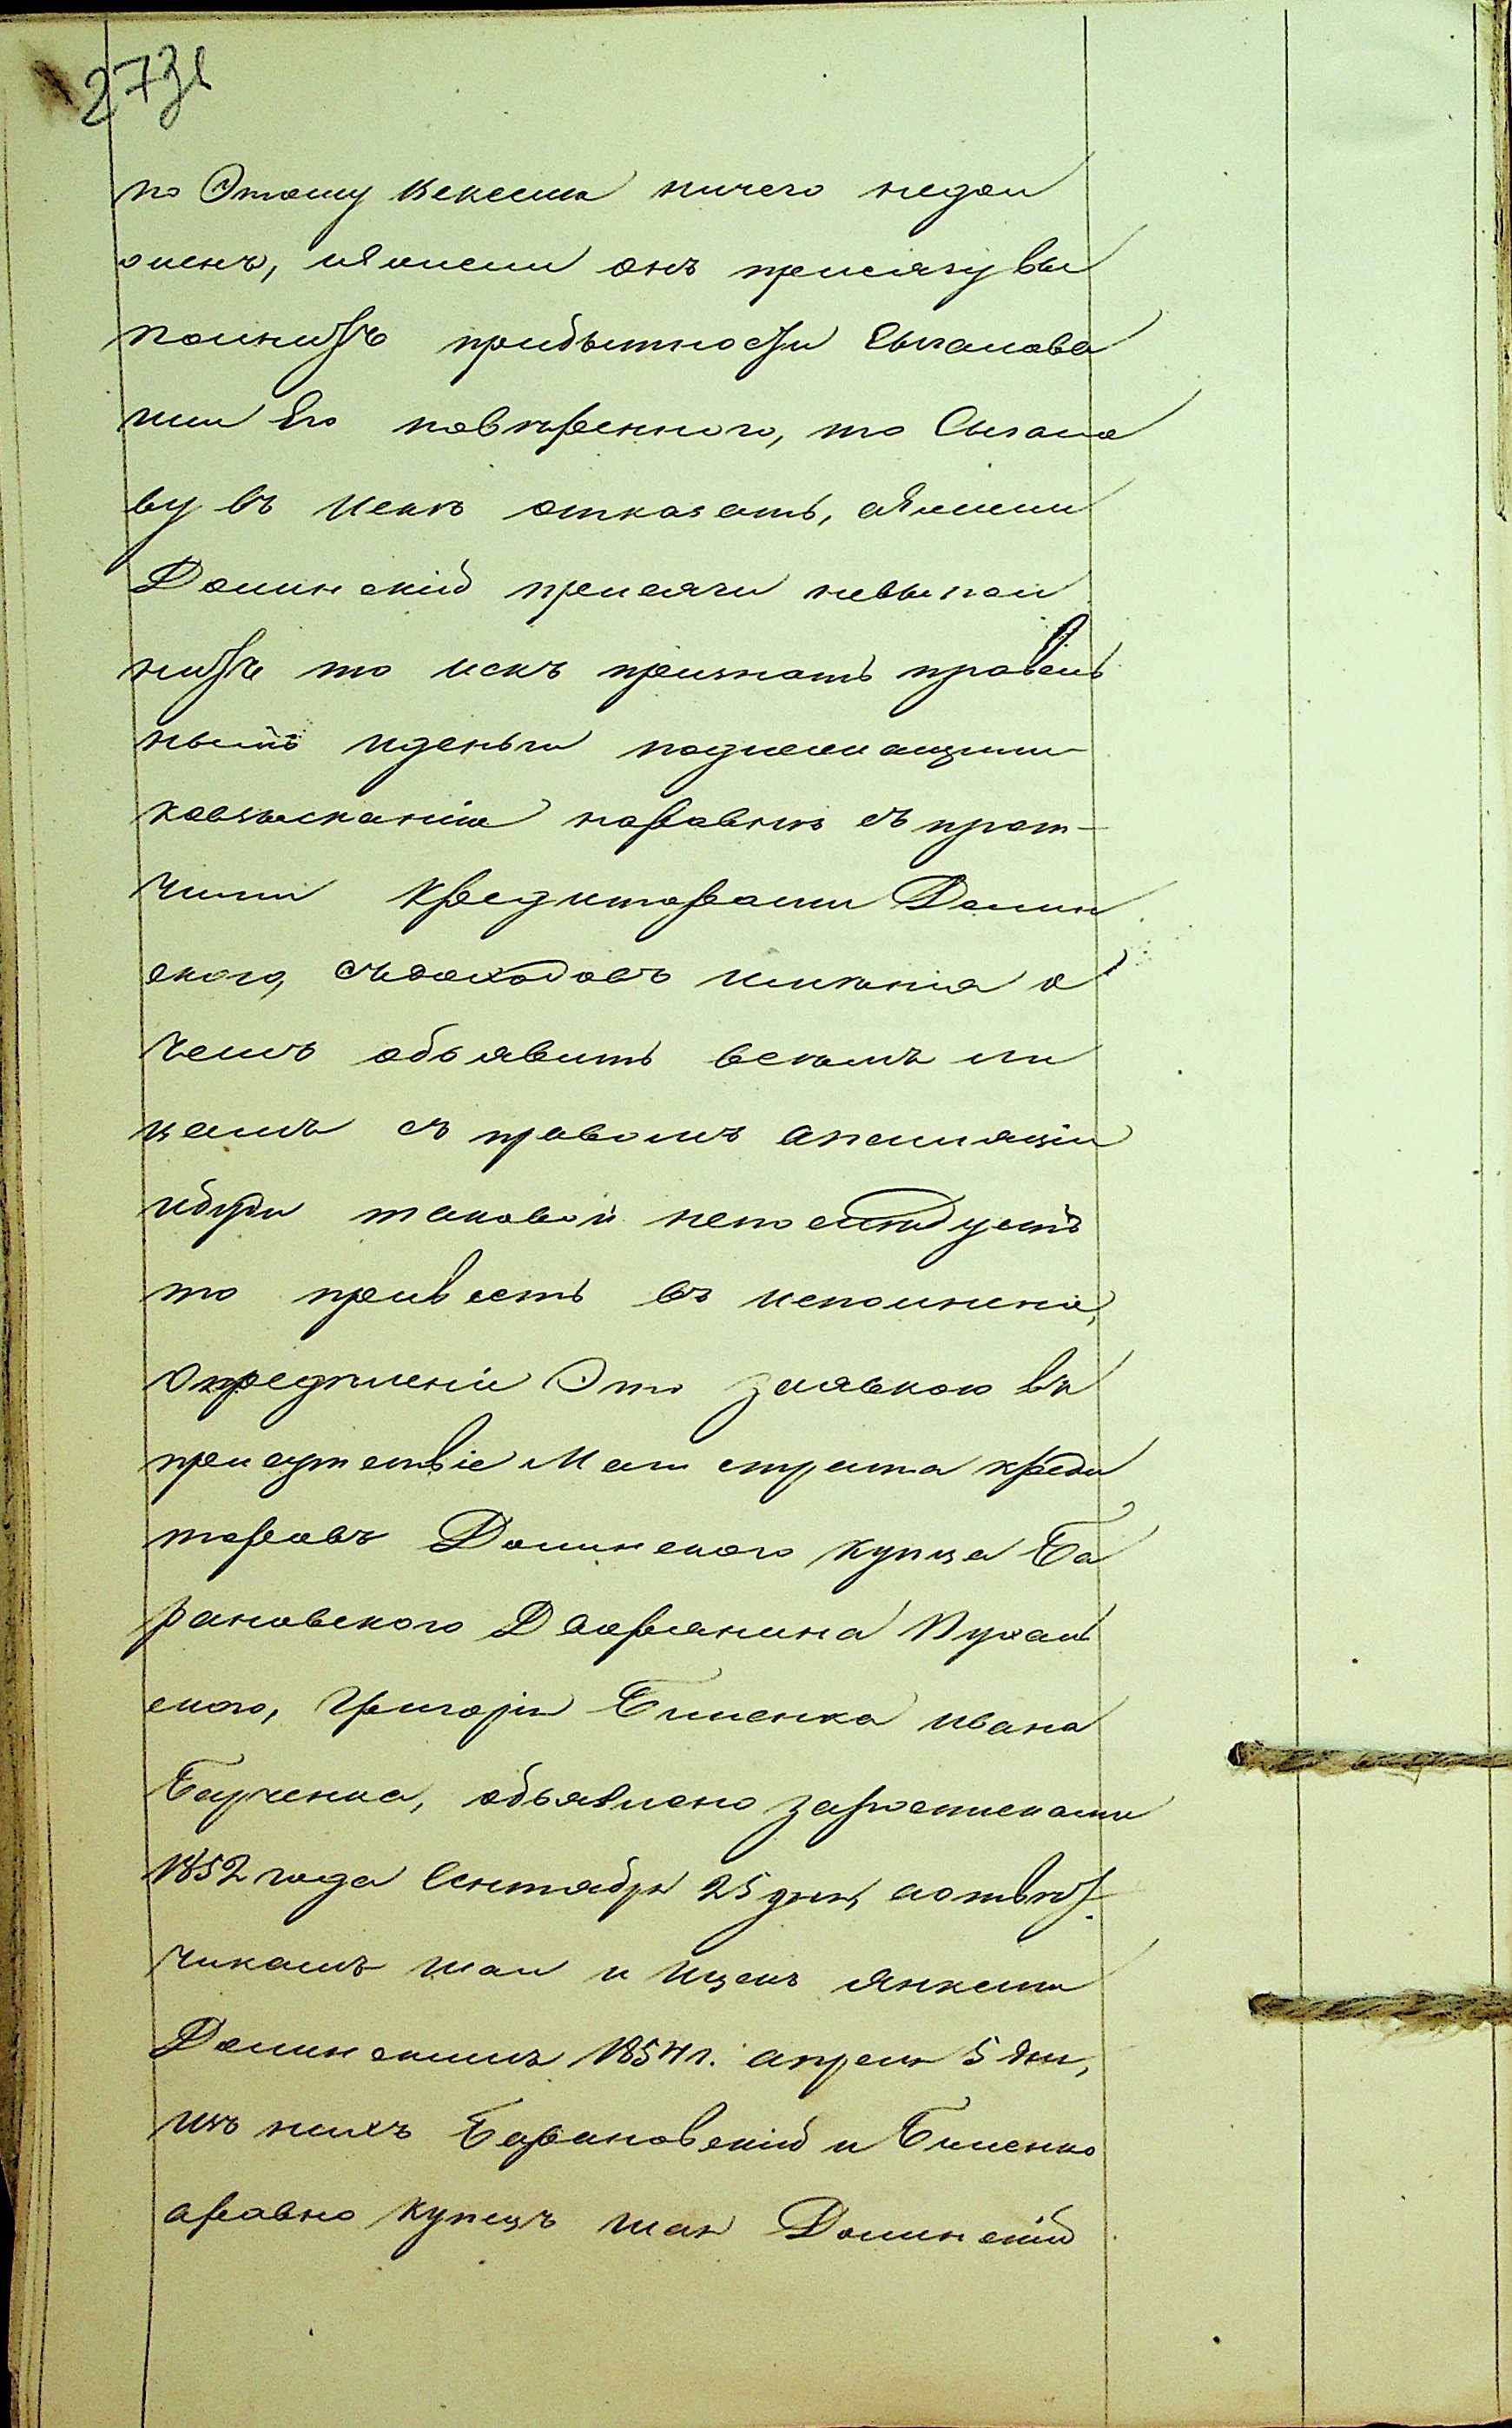 по Этому векселю ничего недол
женъ, и если онъ присягу вы
полнитъ прибытности Цыганова
или Его повѣренного, то Цыгано
ву въ Искѣ отказать, а если
Долинский присяги невыпол
нитъ то искъ признать правиль
нымъ и деньги подлежащими
ко взысканію наравнѣ съ прот-
чими Кредиторами Долин
ского, съ доходовъ имѣнія о
чемъ объявить всѣмъ ли
цамъ съ правомъ апеляціи
и буди таковой непослѣдуетъ
то привесть въ исполненіе,
Определеніе Это за явкою въ
присутствіе Магистрата креди
торовъ Долинского купца Ба
рановского Дворянина Пухаль
ского, Григорія Биленка Ивана
Барченка, объявлено заросписками
1852 года Сентября 25 дня, а отвѣт
чикамъ Шаи и Ицекъ Янкелю
Долинскимъ 1854 г. апреля 5 дня,
изъ нихъ Барановскій и Биленко
а равно купецъ Шая Долинскій